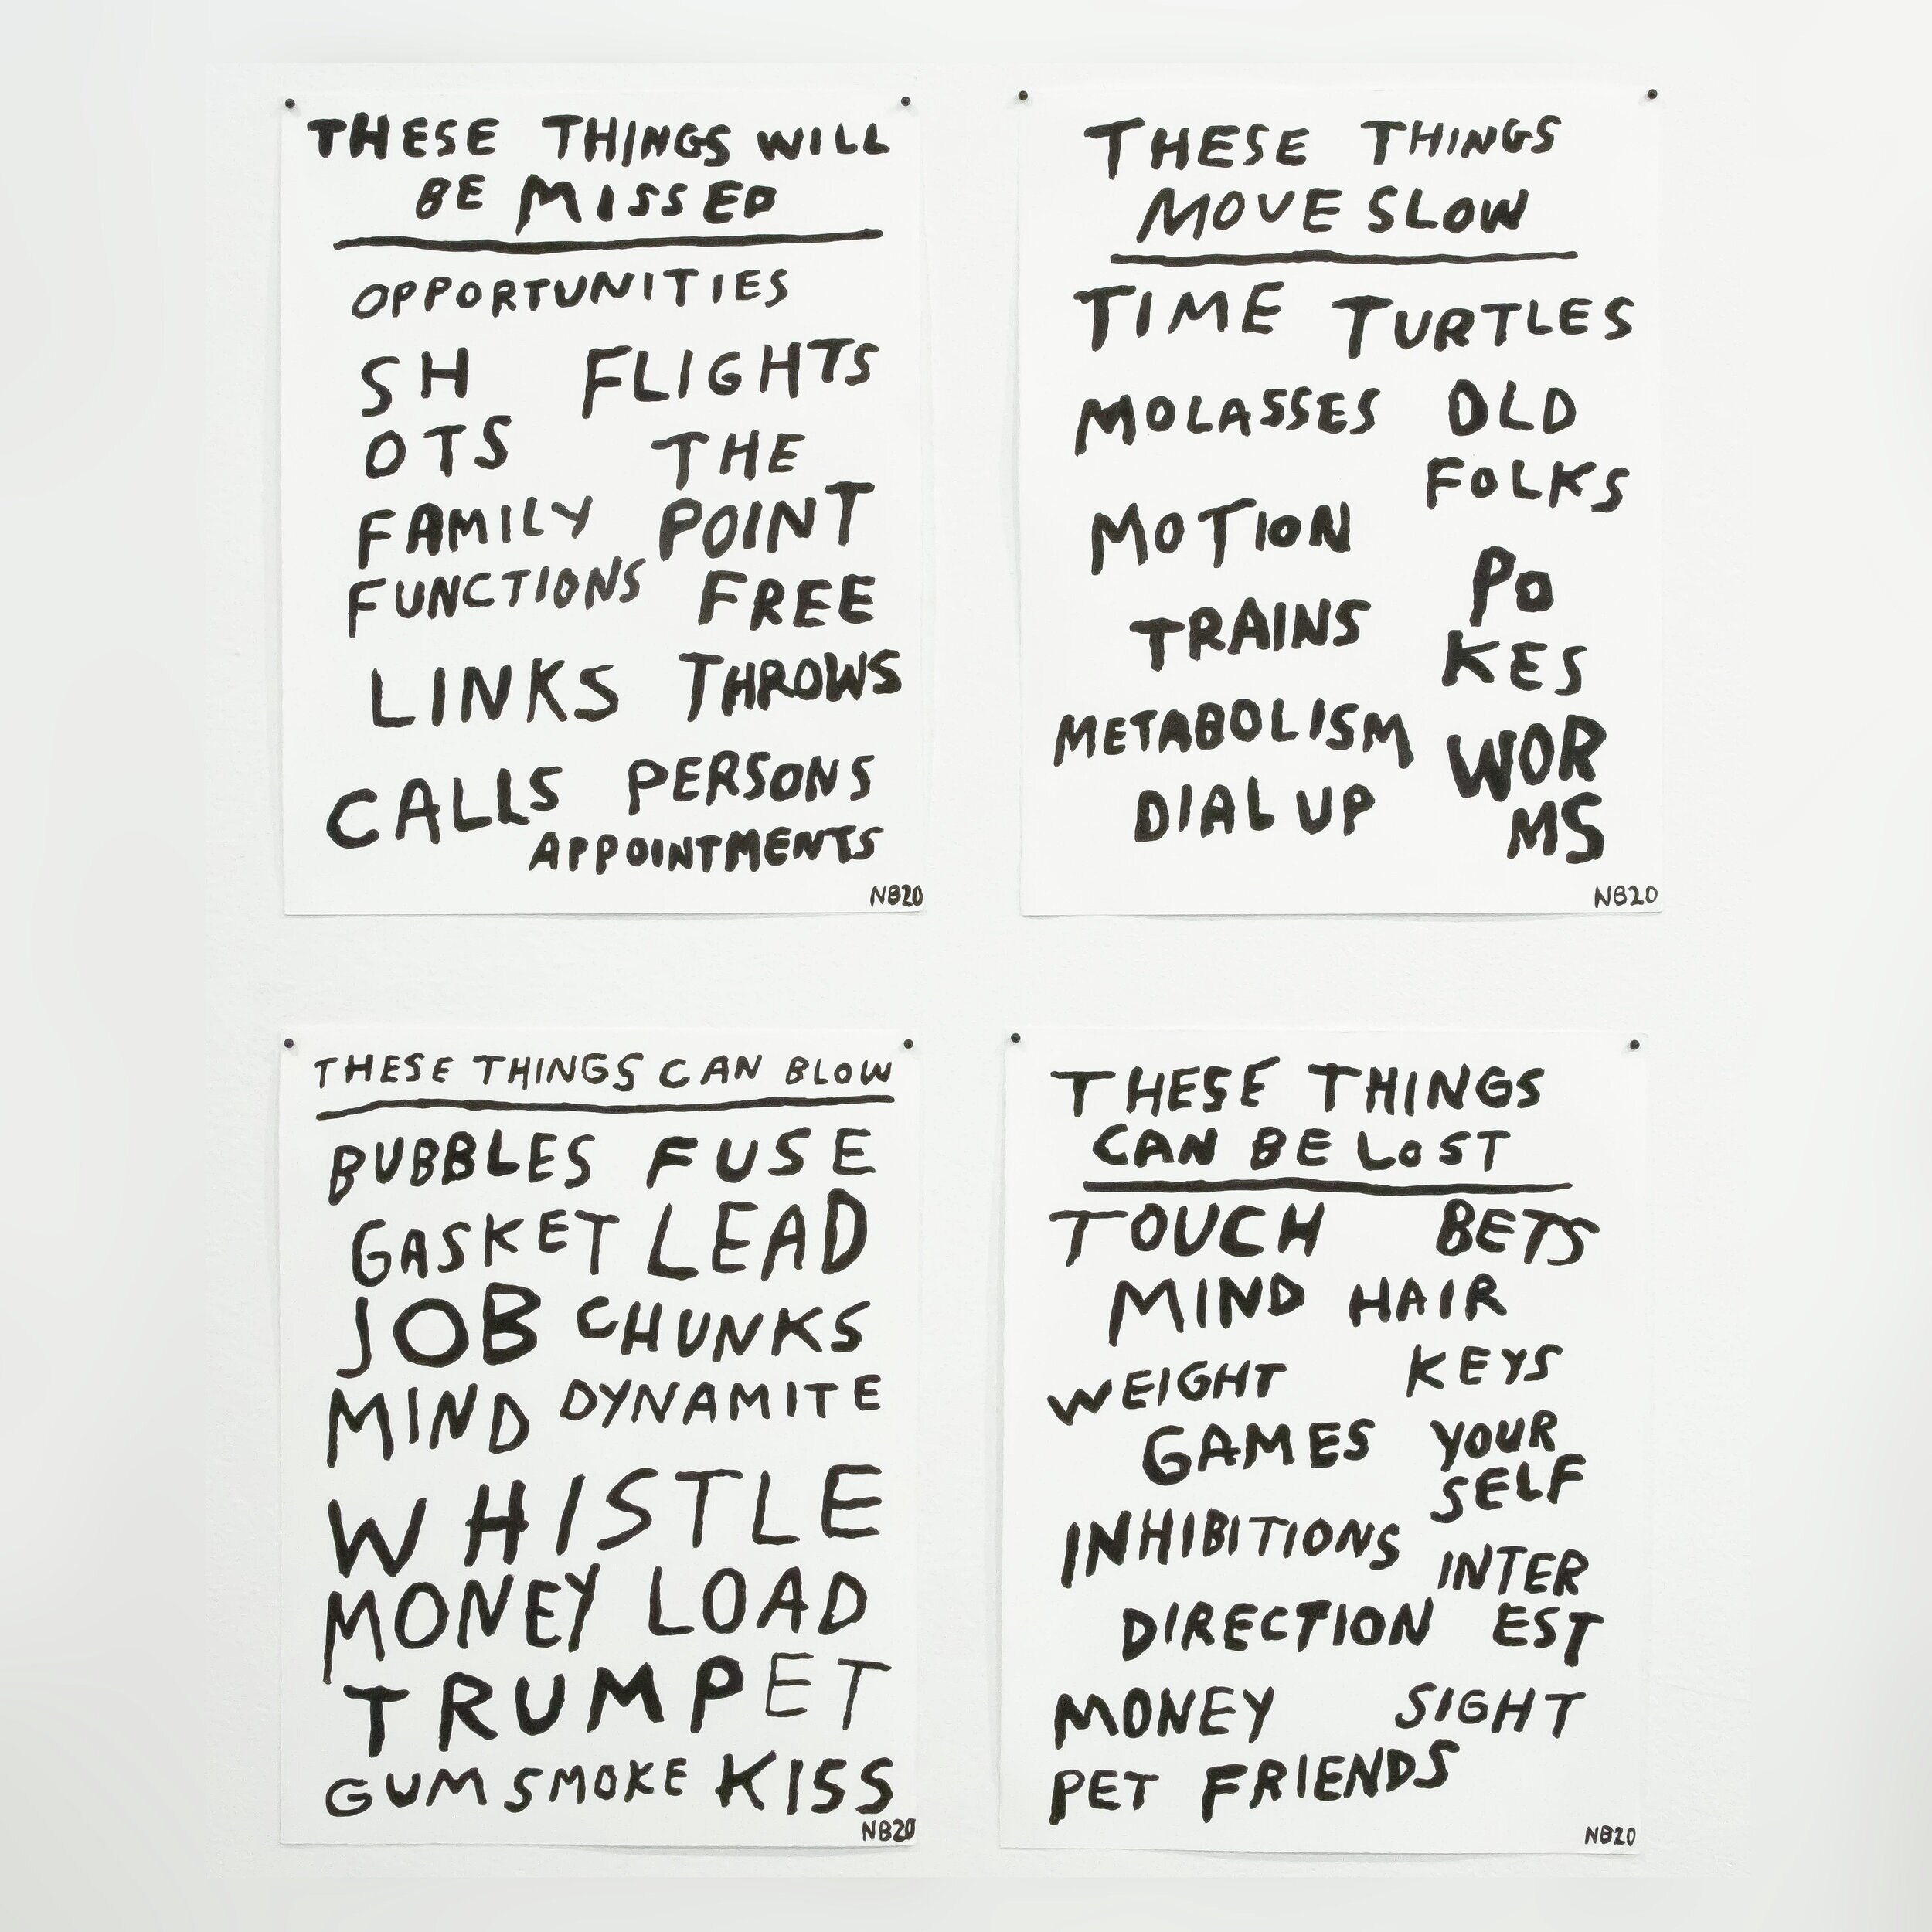 THESE THINGS WILL
BE MISSED
OPPORTUNITIES
SH FLIGHTS
OTS THE
FAMILY POINT
FUNCTIONS FREE
LINKS THROWS
CALLS PERSONS
APPOINTMENTS
NB20
THESE THINGS
MOVE SLOW
TIME TURTLES
MOLASSES OLD
FOLKS
MOTION
PO
TRAINS
KES
METABOLISM WOR
DIAL UP MS
NB20
THESE THINGS CAN BLOW
BUBBLES FUSE
GASKET LEAD
JOB CHUNKS
MIND DYNAMITE
WHISTLE
MONEY LOAD
TRUMPET
GUM SMOKE KISS
NB20
THESE THINGS
CAN BE LOST
TOUCH BETS
MIND HAIR
WEIGHT KEYS
GAMES YOUR
SELF
INHIBITIONS
INTER
DIRECTION EST
MONEY SIGHT
PET FRIENDS
NB20